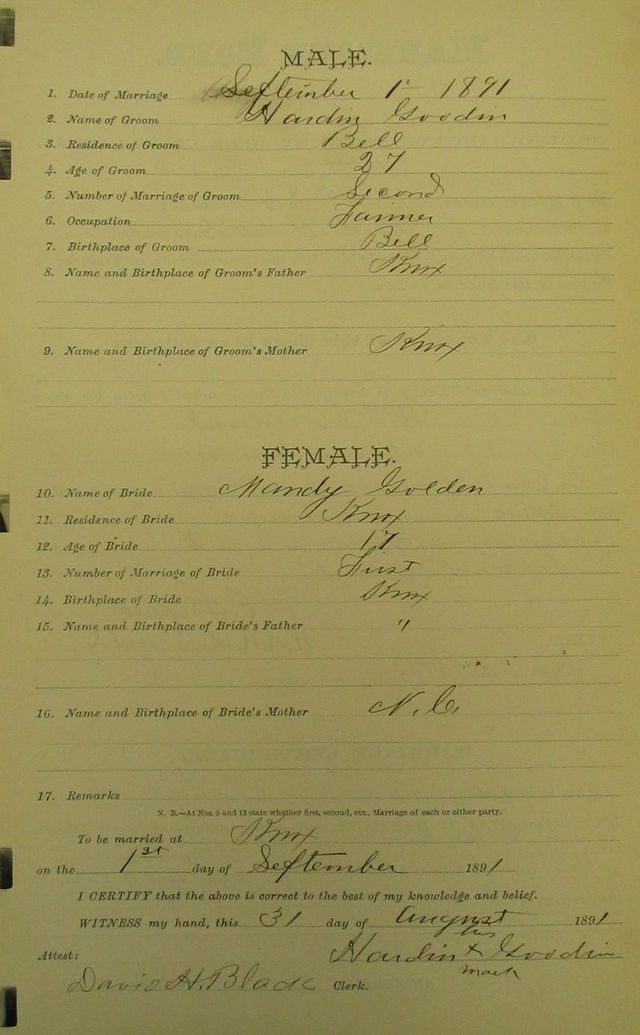 MALE.
1. Date of Marriage September 1st 1891
2. Name of Groom Hardin Goodin
3. Residence of Groom Bell
4. Age of Groom 27
5. Number of Marriage of Groom Second
6. Occupation Farmer
7. Birthplace of Groom Bell
8. Name and Birthplace of Groom's Father Knox
9. Name and Birthplace of Groom's Mother Knox
FEMALE.
10. Name of Bride Mandy Golden
11. Residence of Bride Knox
12. Age of Bride 17
13. Number of Marriage of Bride First
14. Birthplace of Bride Knox
15. Name and Birthplace of Bride's Father "
16. Name and Birthplace of Bride's Mother N. C.
17. Remarks
N. B.—At Nos. 5 and 13 state whether first, second, etc., Marriage of each or either party.
To be married at Knox
on the 1st day of September 1891
I CERTIFY that the above is correct to the best of my knowledge and belief.
WITNESS my hand, this 31 day of August 1891
his
Attest: Hardin x Goodin
mark
David H. Black Clerk.